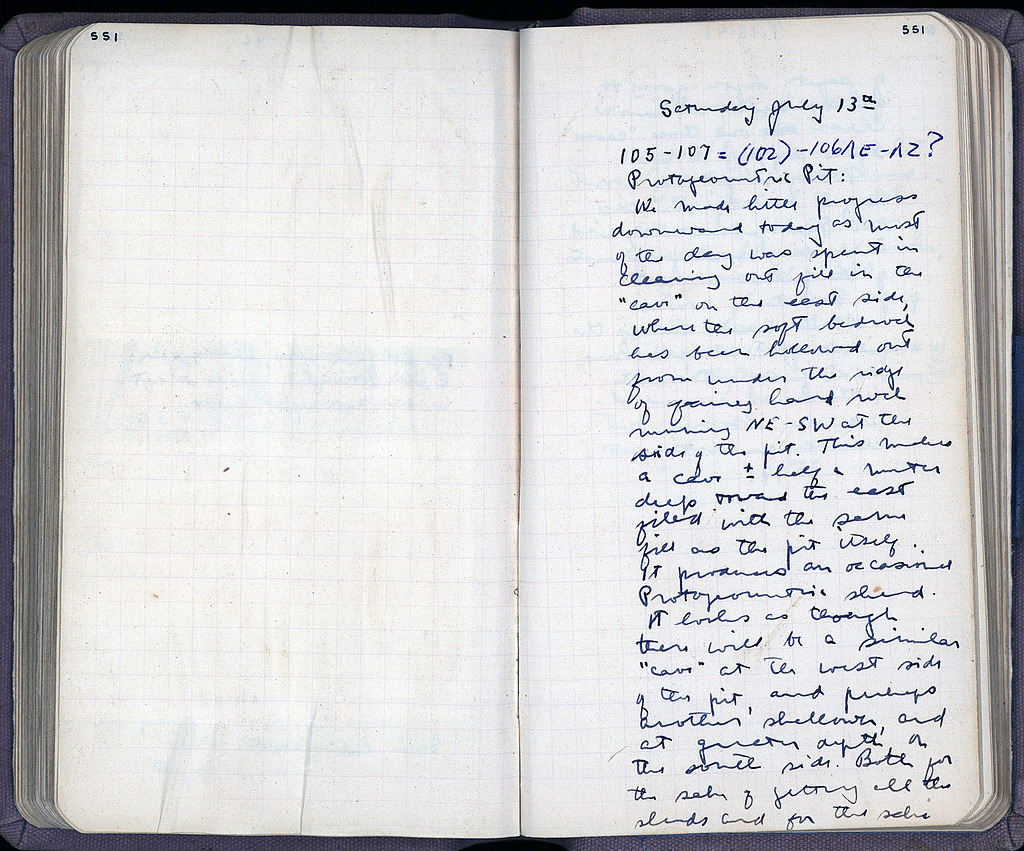 551
551
Saturday July 13th
105-107 = (102)-106/ΛE-ΛZ?
Protogeometric Pit:
We made little progress
downward today as most
of the day was spent in
cleaning out fill in the
"cave" on the east side,
where the soft bedrock
has been hollowed out
from under the ridge
of fairly hard rock
running NE-SW at the
side of the pit. This makes
a cave ± half a meter
deep toward the east
filled with the same
fill as the pit itself.
It produces an occasional
Protogeometric sherd.
It looks as though
there will be a similar
"cave" at the west side
of the pit, and perhaps
another, shallower, and
at greater depth, on
the south side. Both for
the sake of getting all the
sherds and for the sake